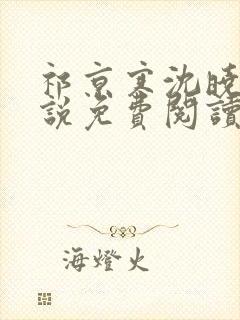 祁京寒沈曉
說免費閱讀
海燈火